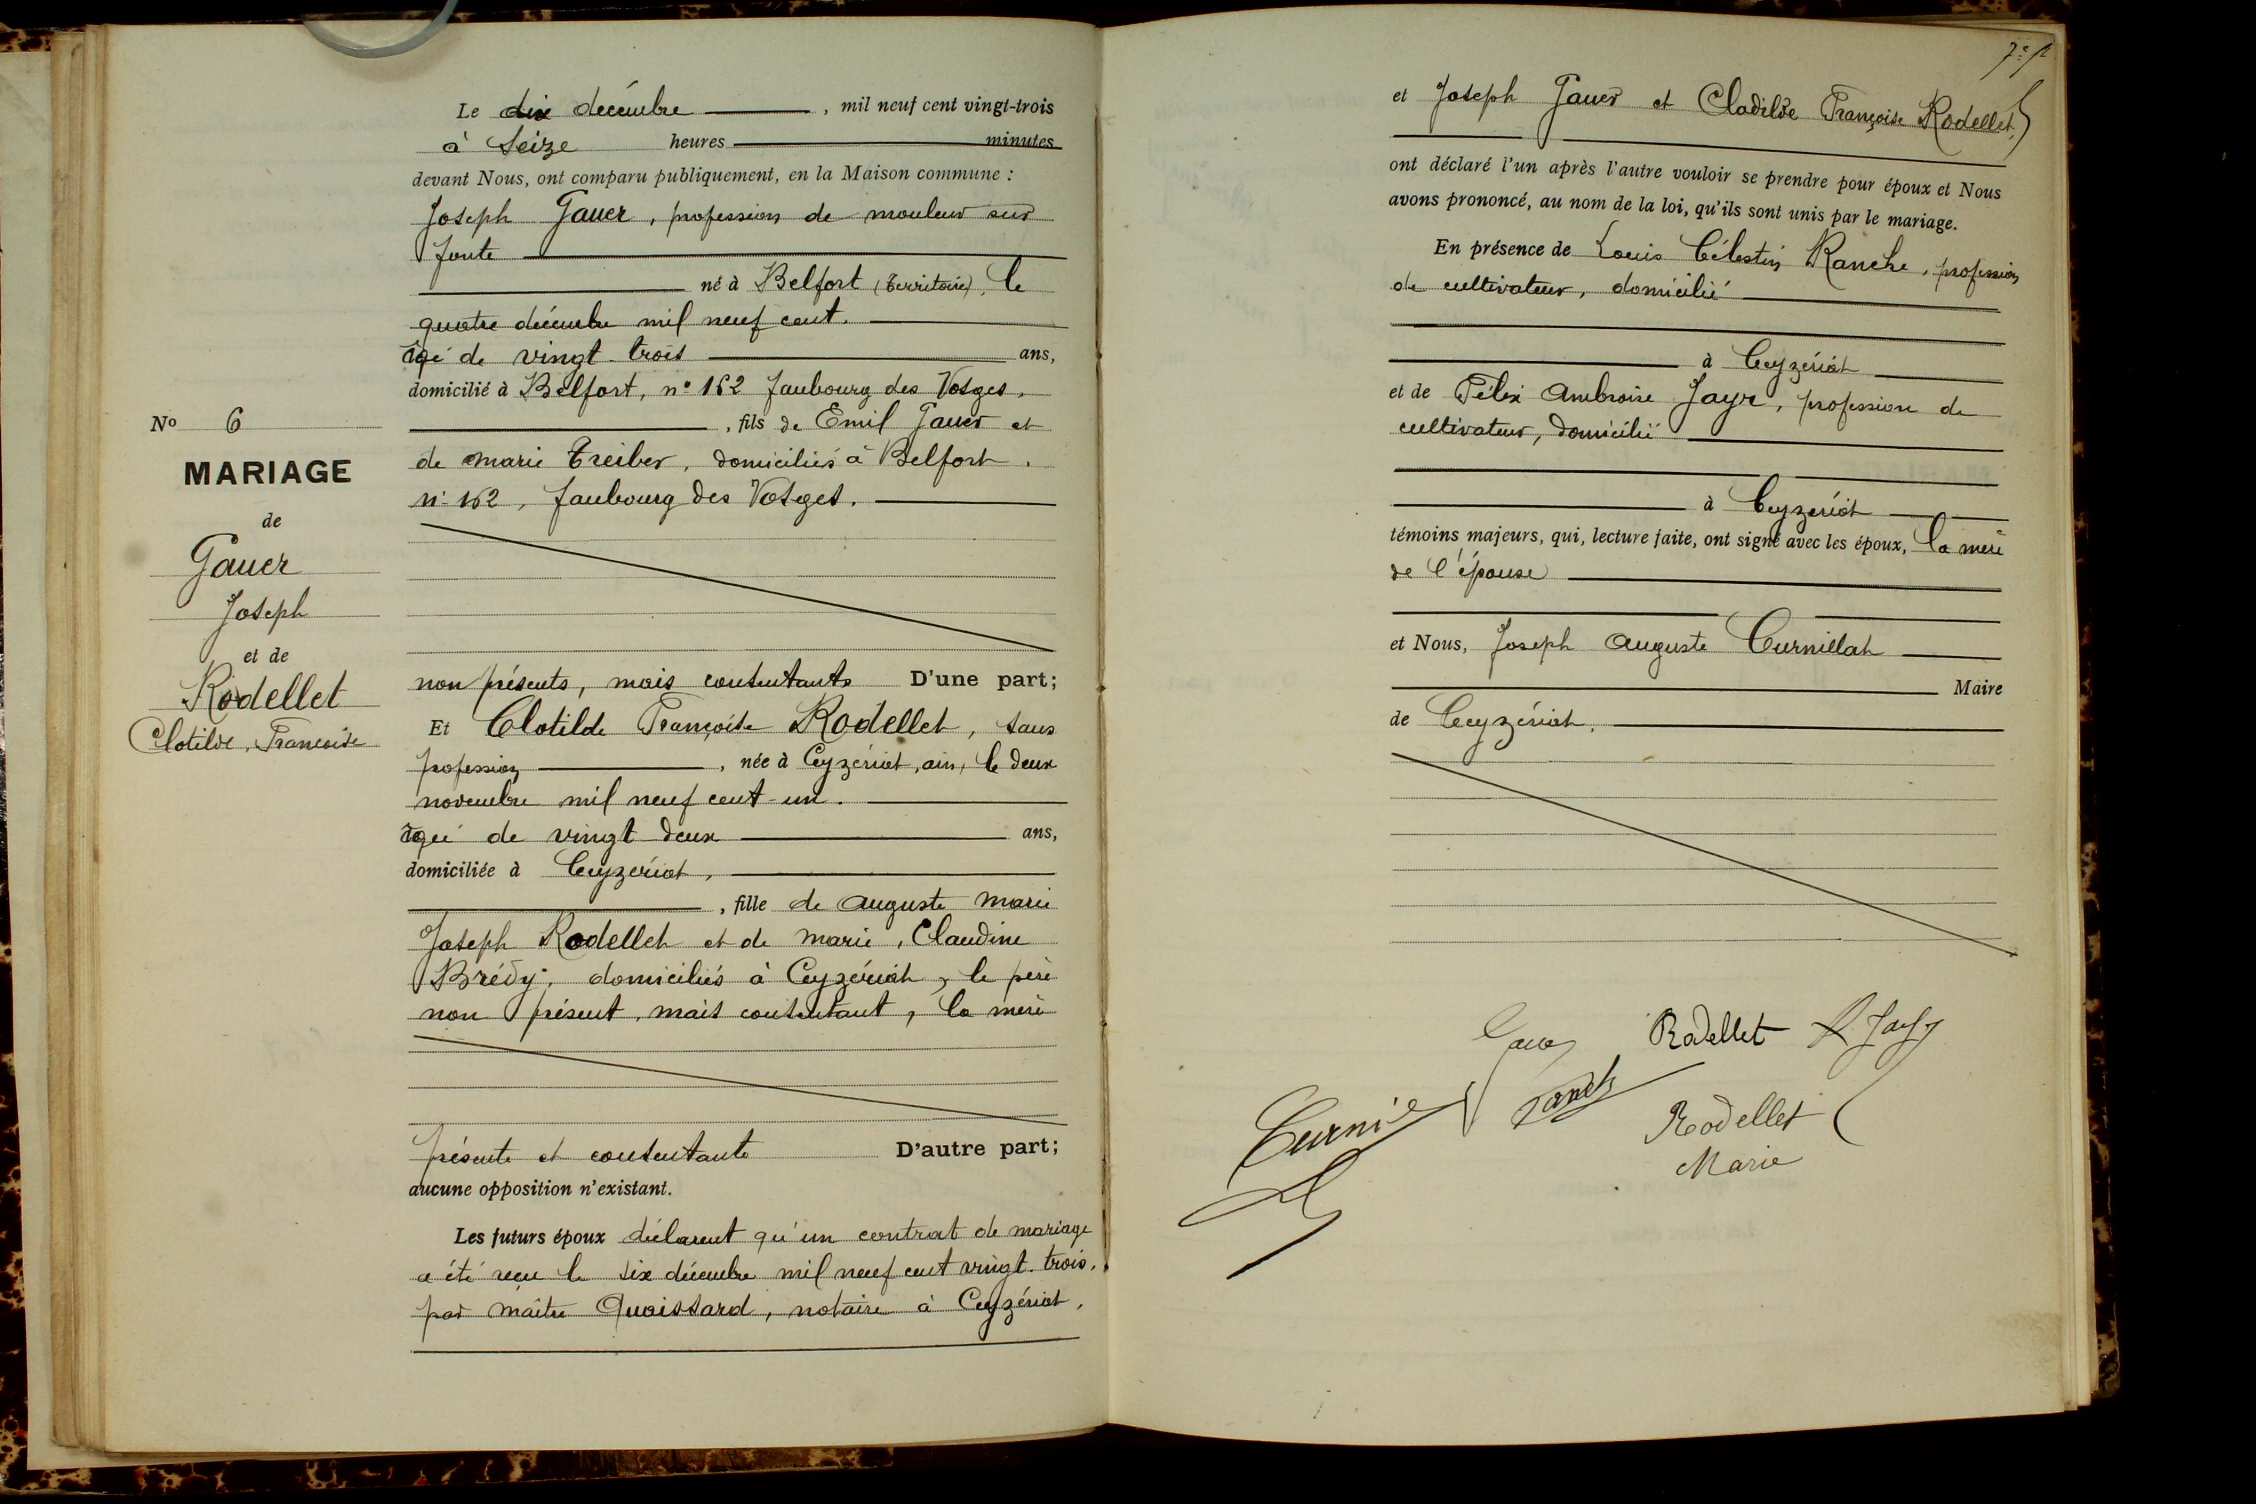 Le dix décembre , mil neuf cent vingt-trois
à Seize heures minutes
devant Nous, ont comparu publiquement, en la Maison commune :
Joseph Gauer, profession de mouleur sur
fonte
né à Belfort (Territoire), le
quatre décembre mil neuf cent.
âgé de vingt trois ans,
domicilié à Belfort, n° 162 faubourg des Vosges,
, fils de Emil Gauer et
de marie Treiber, domiciliés à Belfort.
n° 162, faubourg des Vosges.
non présents, mais consentants D'une part;
Et Clotilde Françoise Rodellet, sans
profession , née à Ceyzériat, ain, le deux
novembre mil neuf cent un.
âgée de vingt deux ans,
domiciliée à Ceyzériat,
, fille de auguste marie
Joseph Rodellet et de marie, Claudine
Brédy, domiciliés à Ceyzériat, le père
non présent, mais consentant, la mère
présente et consentante D'autre part;
aucune opposition n'existant.
Les futurs époux déclarent qu'un contrat de mariage
a été reçu le six décembre mil neuf cent vingt-trois,
par maître Quoissard, notaire à Ceyzériat,
No 6
MARIAGE
de
Gauer
Joseph
et de
Rodellet
Clotilde, Françoise
7e f
et Joseph Gauer et Clodilde Françoise Rodellet,
ont déclaré l'un après l'autre vouloir se prendre pour époux et Nous
avons prononcé, au nom de la loi, qu'ils sont unis par le mariage.
En présence de Louis Célestin Ranche, profession
de cultivateur, domicilié
à Ceyzériat
et de Félix Ambroise Jayr, profession de
cultivateur, domicilié
à Ceyzériat
témoins majeurs, qui, lecture faite, ont signé avec les époux, la mère
de l'épouse
et Nous, Joseph Auguste Curnillat
Maire
de Ceyzériat.
Gauer Rodellet F. Jayr
Rodellet
Marie